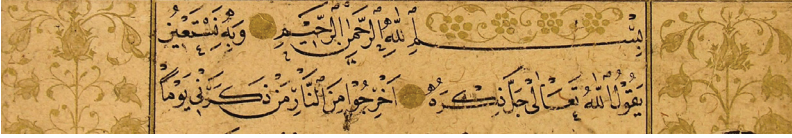 بِسْمِ اللّٰهِ الرَّحْمٰنِ الرَّحِيْمِ وَبِهِ نَسْتَعِيْنُ
يَقُوْلُ اللّٰهُ تَعَالٰى جَلَّ ذِكْرُهُ اَخْرِجُوْا مِنَ النَّارِ مَنْ ذَكَرَنِىْ يَوْمًا